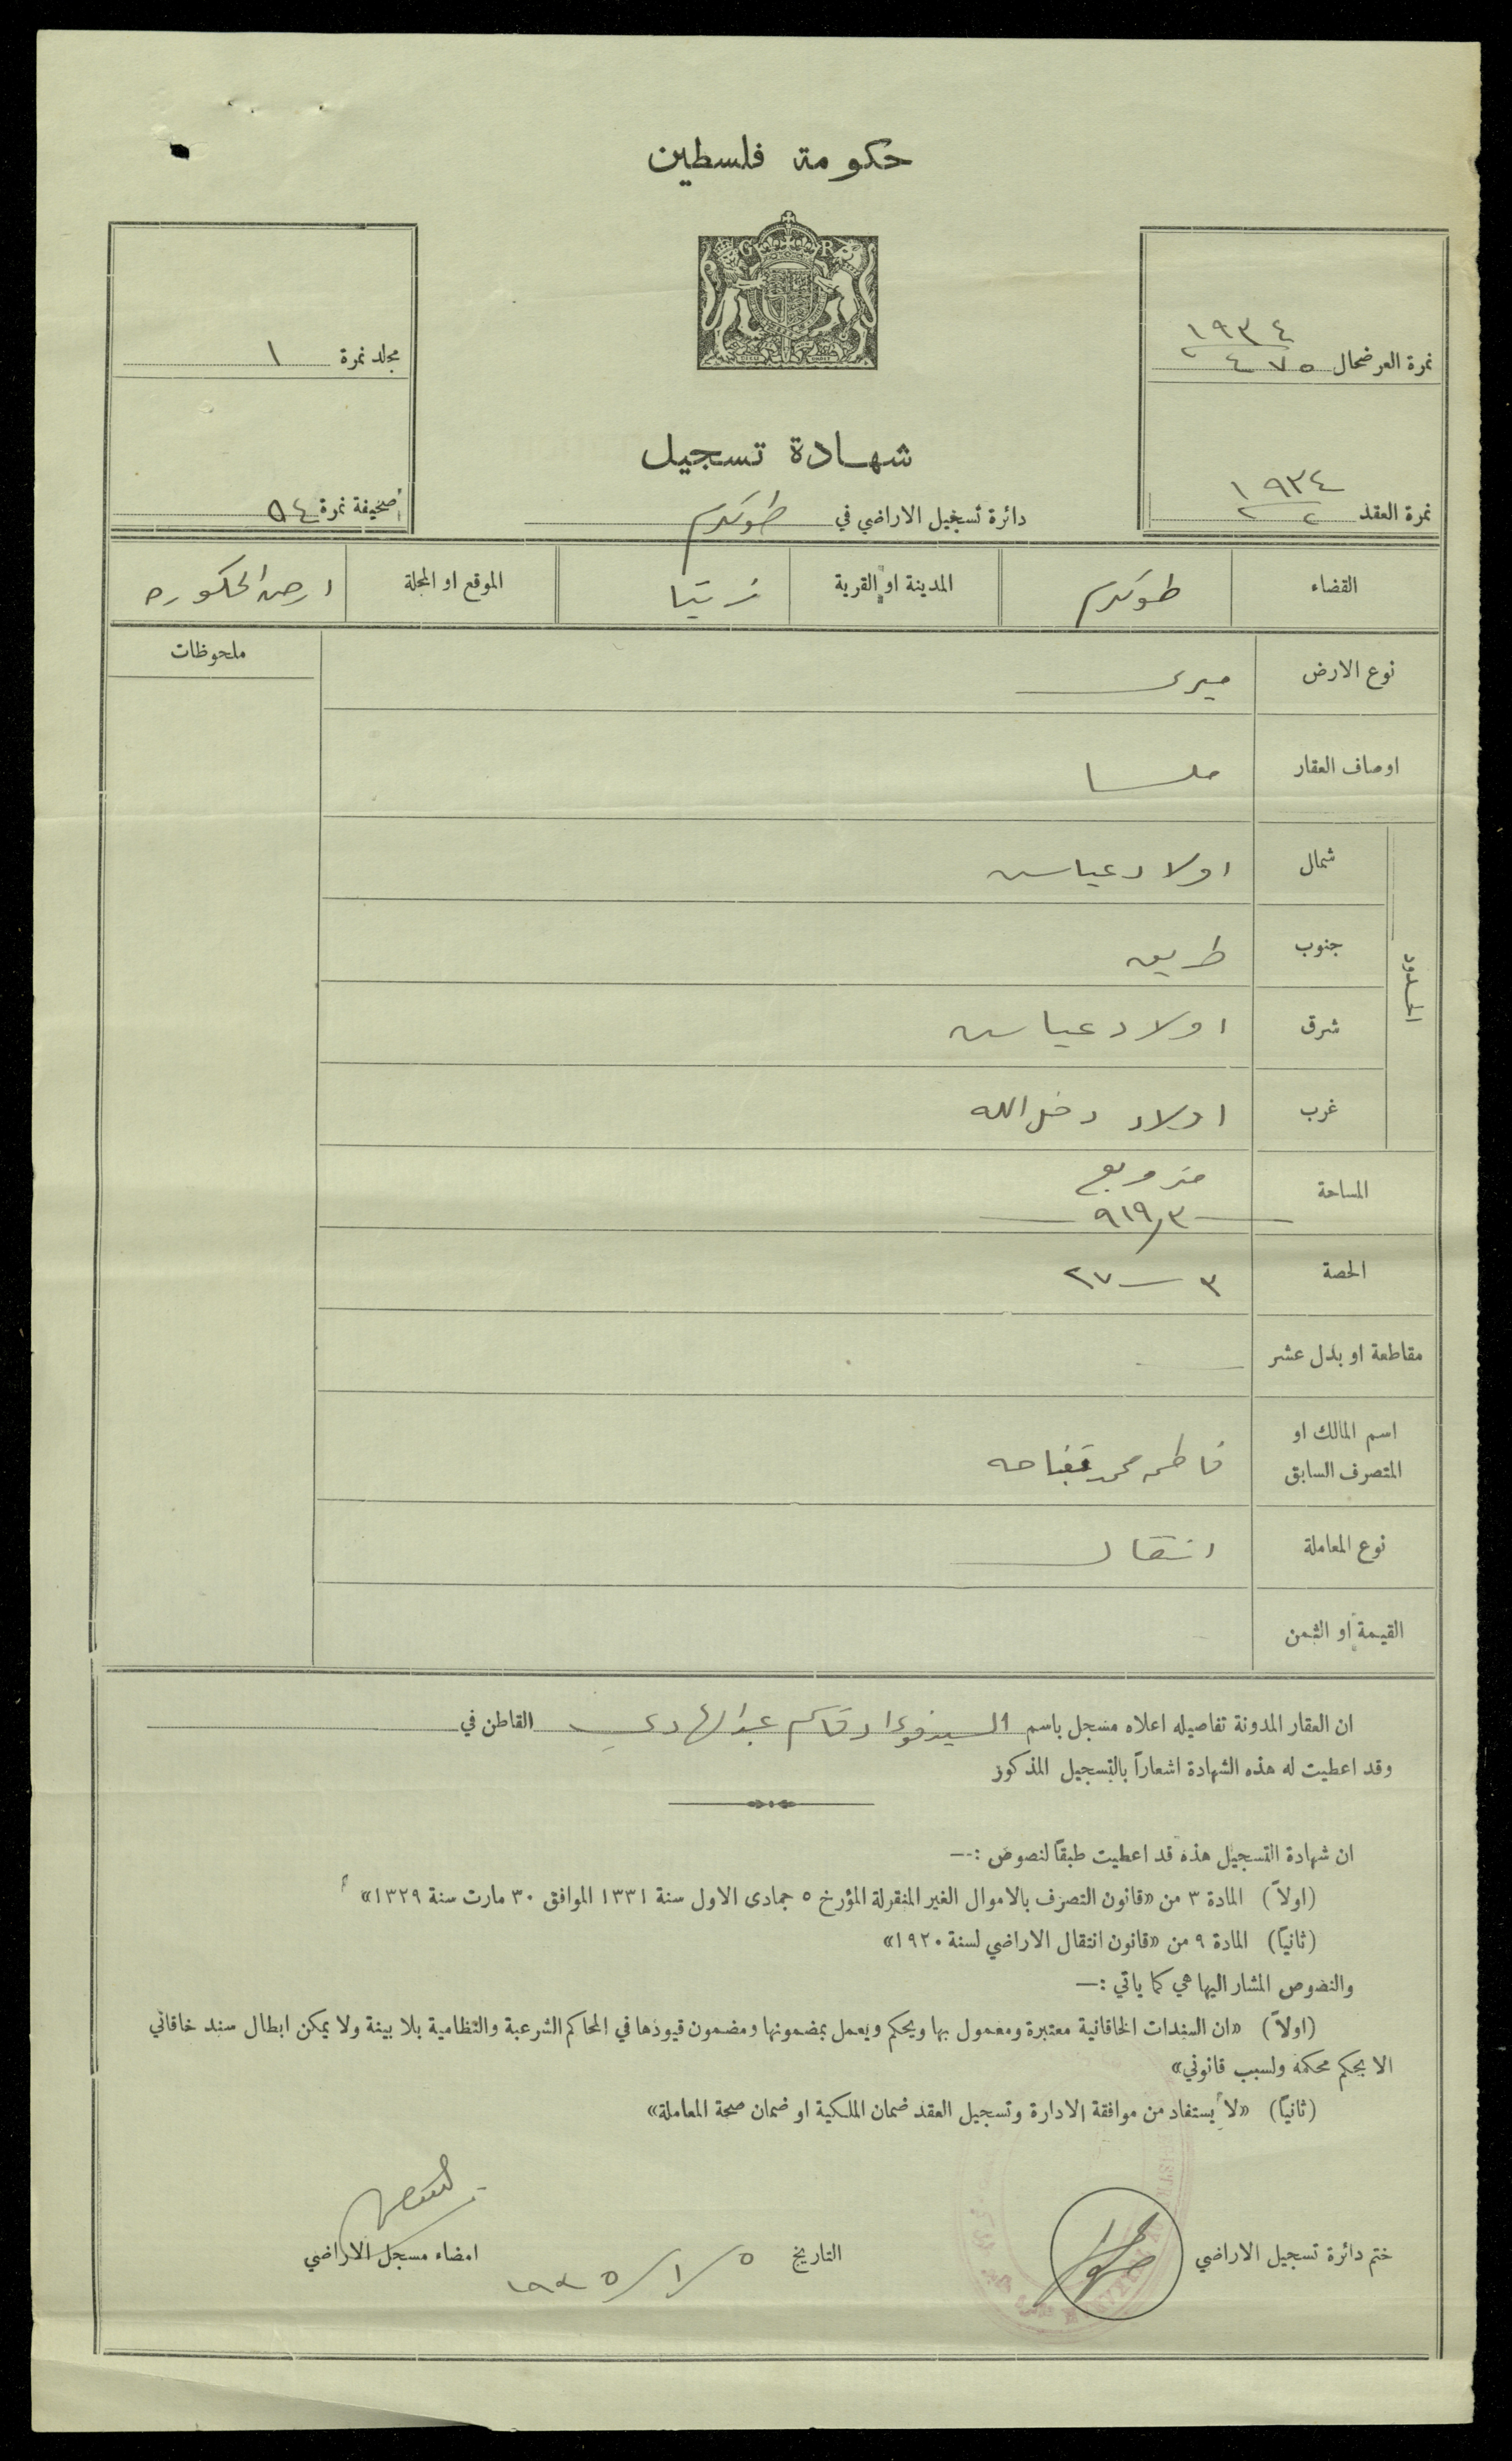 حكومة فلسطين
نمرة العرضحال ١٩٣٤ / ٤٧٥
مجلد نمرة ١
شهادة تسجيل
نمرة العقد ١٩٣٤
صحيفة نمرة ٥٤
دائرة تسجيل الاراضي في طولكرم
القضاء طولكرم المدينة او القرية زيتا الموقع او المحلة ارض الحكوره
ملحوظات
نوع الارض ميري
اوصاف العقار ملسا
الحدود
شمال اولاد عباس
جنوب طريق
شرق اولاد عباس
غرب اولاد دخل الله
المساحة متر مربع
٩١٩,٣
الحصة ٣ — ٢٧
مقاطعة او بدل عشر
اسم المالك او
المتصرف السابق فاطمه محمد
نوع المعاملة انتقال
القيمة او الثمن
ان العقار المدونة تفاصيله اعلاه مسجل باسم السيد فؤاد قاسم عبد الهادي القاطن في
وقد اعطيت له هذه الشهادة اشعاراً بالتسجيل المذكور
ان شهادة التسجيل هذه قد اعطيت طبقاً لنصوص :—
(اولاً) المادة ٣ من «قانون التصرف بالاموال الغير المنقولة المؤرخ ٥ جمادى الاول سنة ١٣٣١ الموافق ٣٠ مارت سنة ١٣٢٩»
(ثانياً) المادة ٩ من «قانون انتقال الاراضي لسنة ١٩٢٠»
والنصوص المشار اليها هي كما ياتي :—
(اولاً) «ان السندات الخاقانية معتبرة ومعمول بها ويحكم ويعمل بمضمونها ومضمون قيودها في المحاكم الشرعية والنظامية بلا بينة ولا يمكن ابطال سند خاقاني
الا بحكم محكمة ولسبب قانوني»
(ثانياً) «لا يستفاد من موافقة الادارة وتسجيل العقد ضمان الملكية او ضمان صحة المعاملة»
ختم دائرة تسجيل الاراضي التاريخ ٥/١/١٩٣٥ امضاء مسجل الاراضي